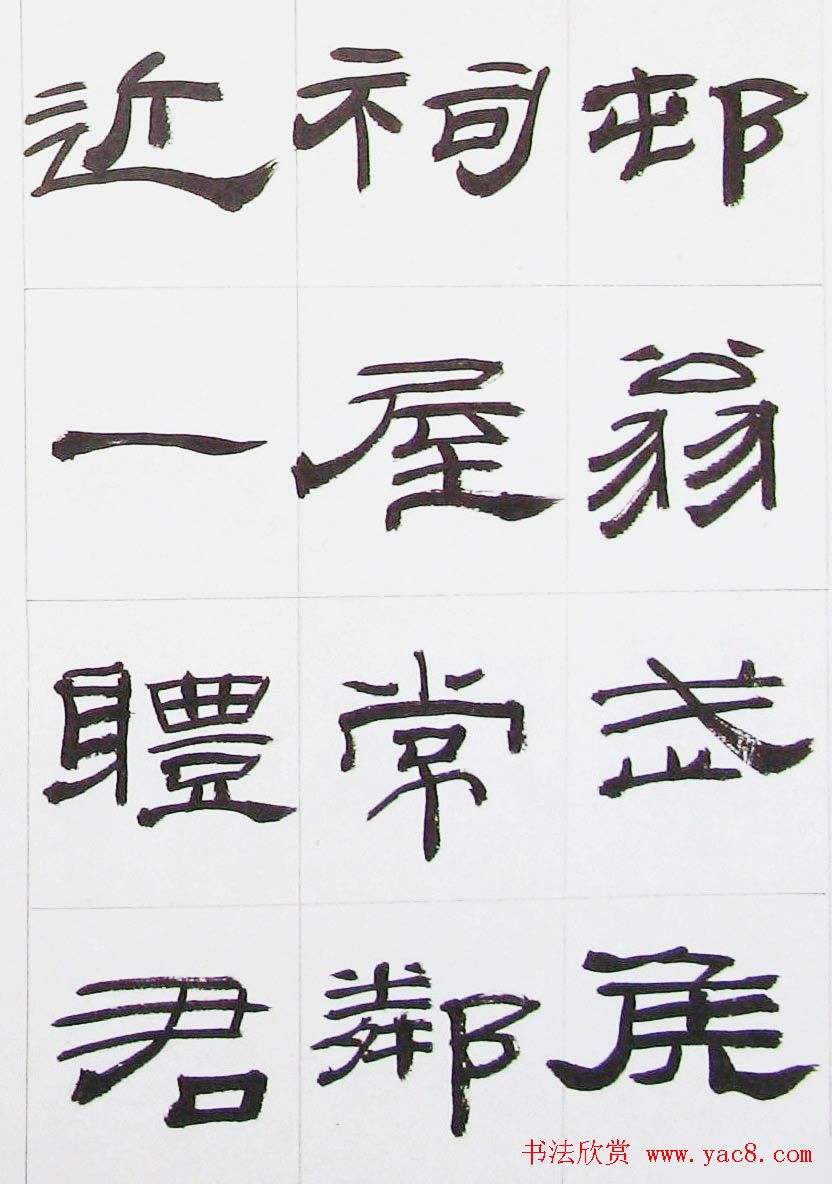 邨翁武侯
祠屋常鄰
近一軆君
书法欣赏 www.yac8.com